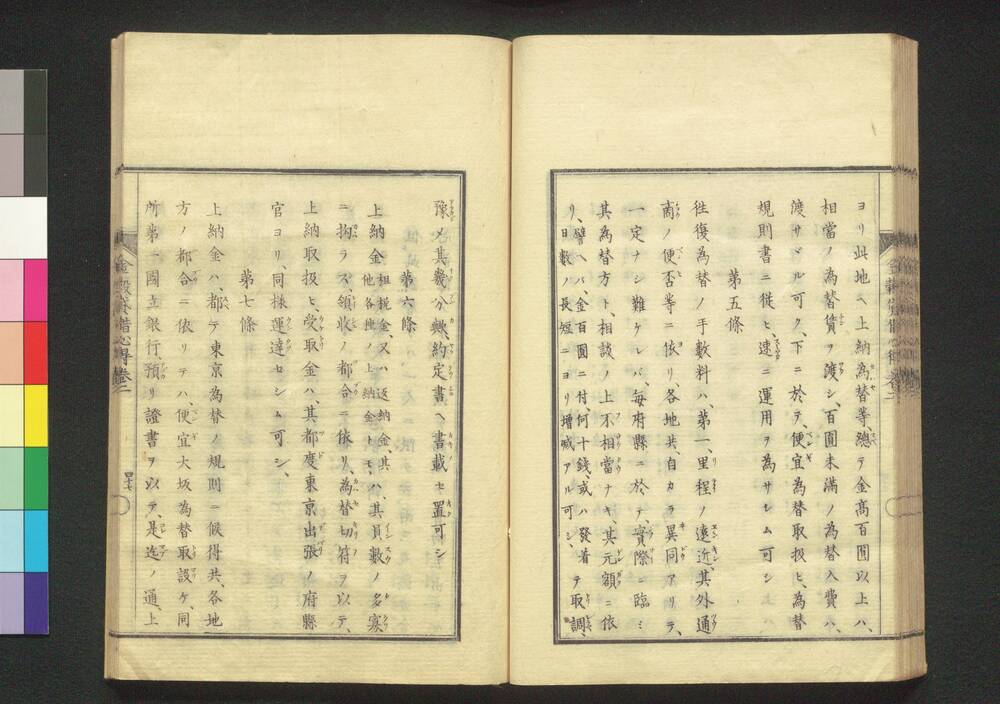 ヨリ此地ヘ上納為替等、總テ金高百圓以上ハ、
相當ノ為替賃ヲ渡シ、百圓未滿ノ為替入費ハ、
渡サヾル可ク、下ニ於テ、便宜為替取扱ヒ、為替
規則書ニ従ヒ、速ニ運用ヲ為サシム可シ
第五條
往復為替ノ手數料ハ、第一、里程ノ遠近其外通
商ノ便否等ニ依リ、各地共、自カラ異同アリテ、
一定ナシ難ケレバ、毎府縣ニ於テ實際ニ臨ミ
其為替方ト、相談ノ上不相當ナキ、其元額ニ依
リ、譬ヘバ、金百圓ニ付何十錢或ハ發着
日數ノ長短ニヨリ増减アルテ取調、可シ、
豫メ其幾分轍約定書ヘ書載セ置可シ
第六條
上納金 租税金、又ハ返納金、其他各種ノ上納金トモ、ハ、其員數ノ多寡
ニ拘ラス、領收ノ都合ニ依リ、為替切符ヲ以テ、
上納取扱ヒ、受取金ハ、其都度東京出張ノ府縣
官ヨリ、同様運達セシム可シ、
第七條
上納金ハ、都テ東京為替ノ規則ニ候得共、各地
方ノ都合ニ依リテハ、便宜大坂為替取設ケ、同
所第一國立銀行、預リ證書ヲ以テ、是迄ノ通、上
金穀貸借心得 卷二
四十七